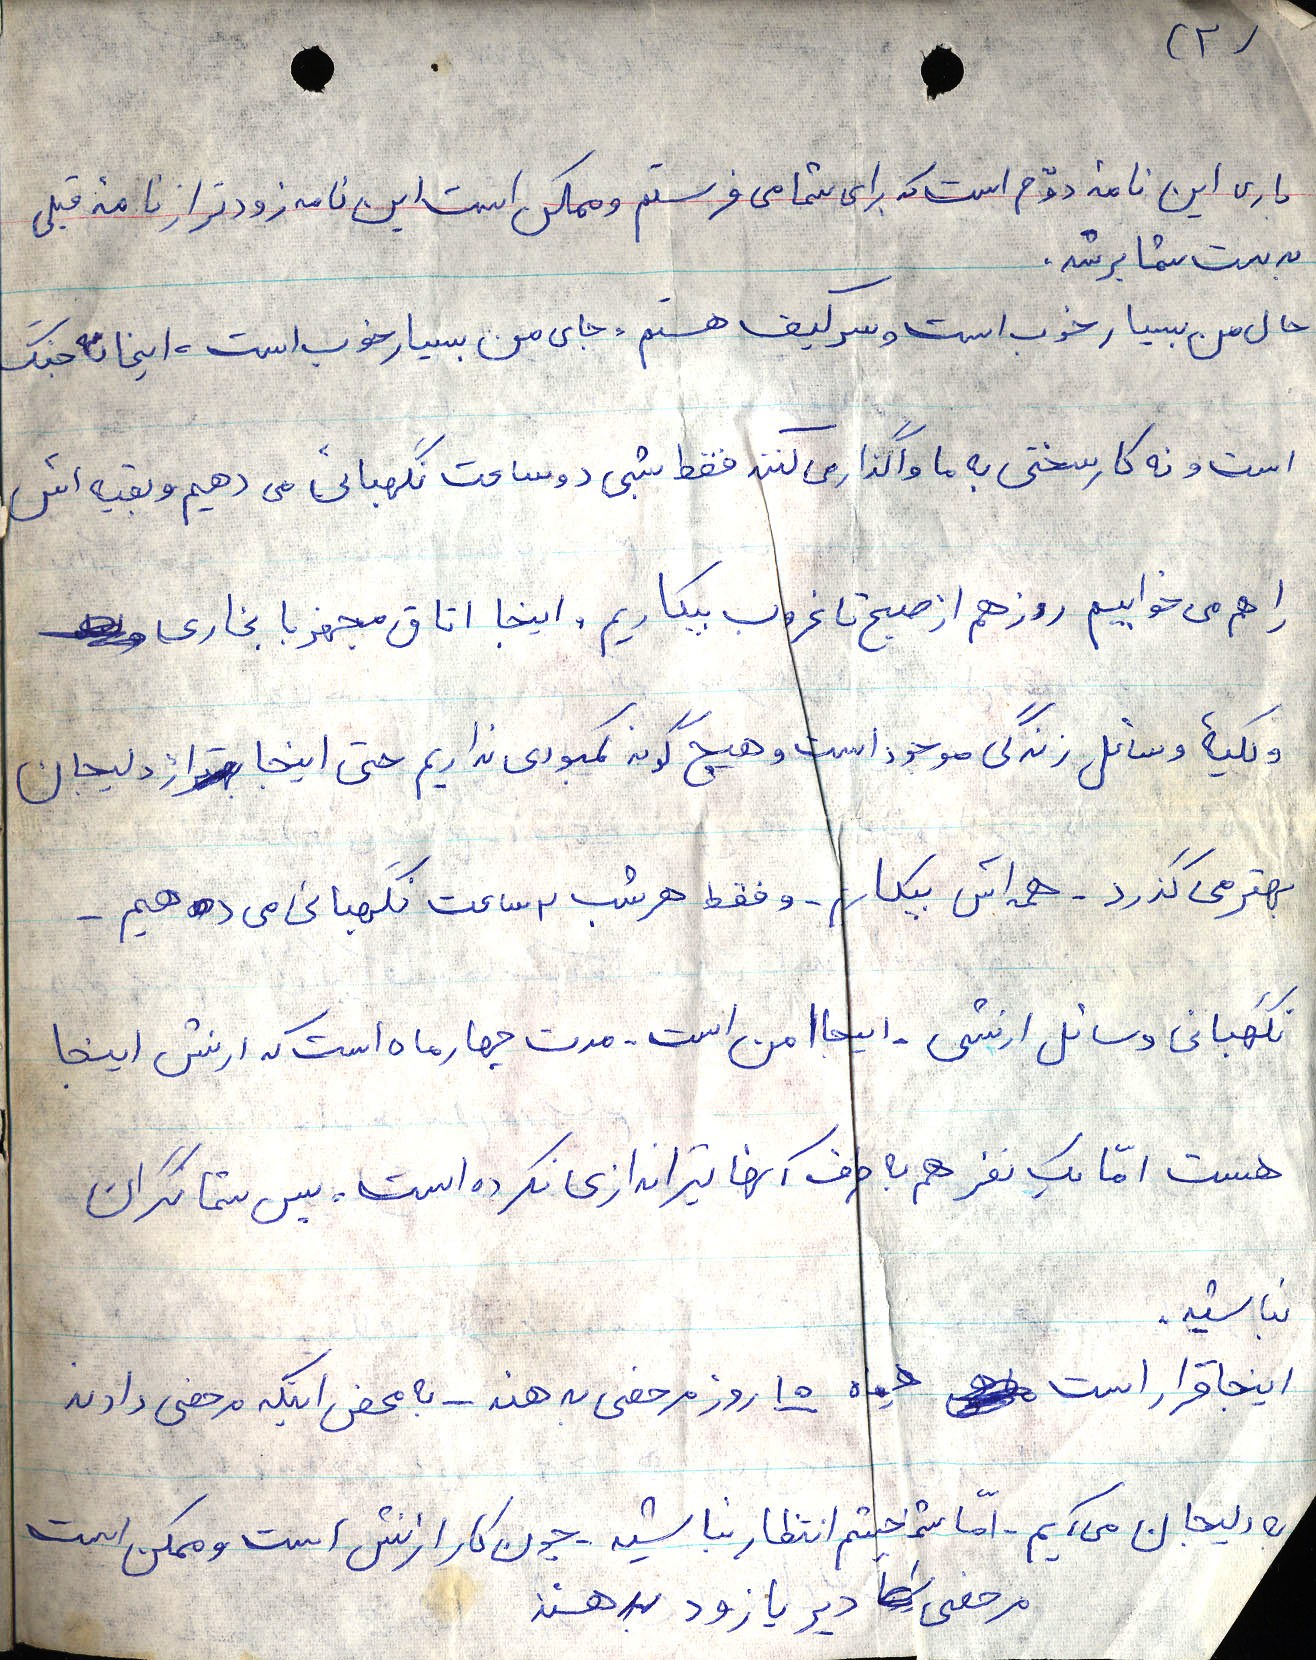 (۲)
باری این نامهٔ دوّم است که برای شما می فرستم و ممکن است این نامه زودتر از نامهٔ قبلی
به دست شما برسد.
حال من بسیار خوب است و سرکیف هستم. جای من بسیار خوب است، اینجا نه جنگ
است و نه کار سختی به ما واگذار می کنند فقط شبی دو ساعت نگهبانی می دهیم و بقیه اش
را هم می خوابیم روز هم از صبح تا غروب بیکاریم. اینجا اتاق مجهز با بخاری
و کلیهٔ وسائل زندگی موجود است و هیچ گونه کمبودی نداریم حتی اینجا از دلیجان
بهتر می گذرد - همه اش بیکاریم - و فقط هر شب ۲ ساعت نگهبانی می دهیم -
نگهبانی وسائل ارتشی - اینجا امن است - مدت چهار ماه است که ارتش اینجا
هست امّا یک نفر هم به طرف آنها تیراندازی نکرده است. پس شما نگران
نباشید.
اینجا قرار است ۱۵ روز مرخصی بدهند - به محض اینکه مرخصی دادند
به دلیجان می آیم - امّا شما چشم انتظار نباشید - چون کار ارتش است و ممکن است
مرخصی دیر یا زود بدهند